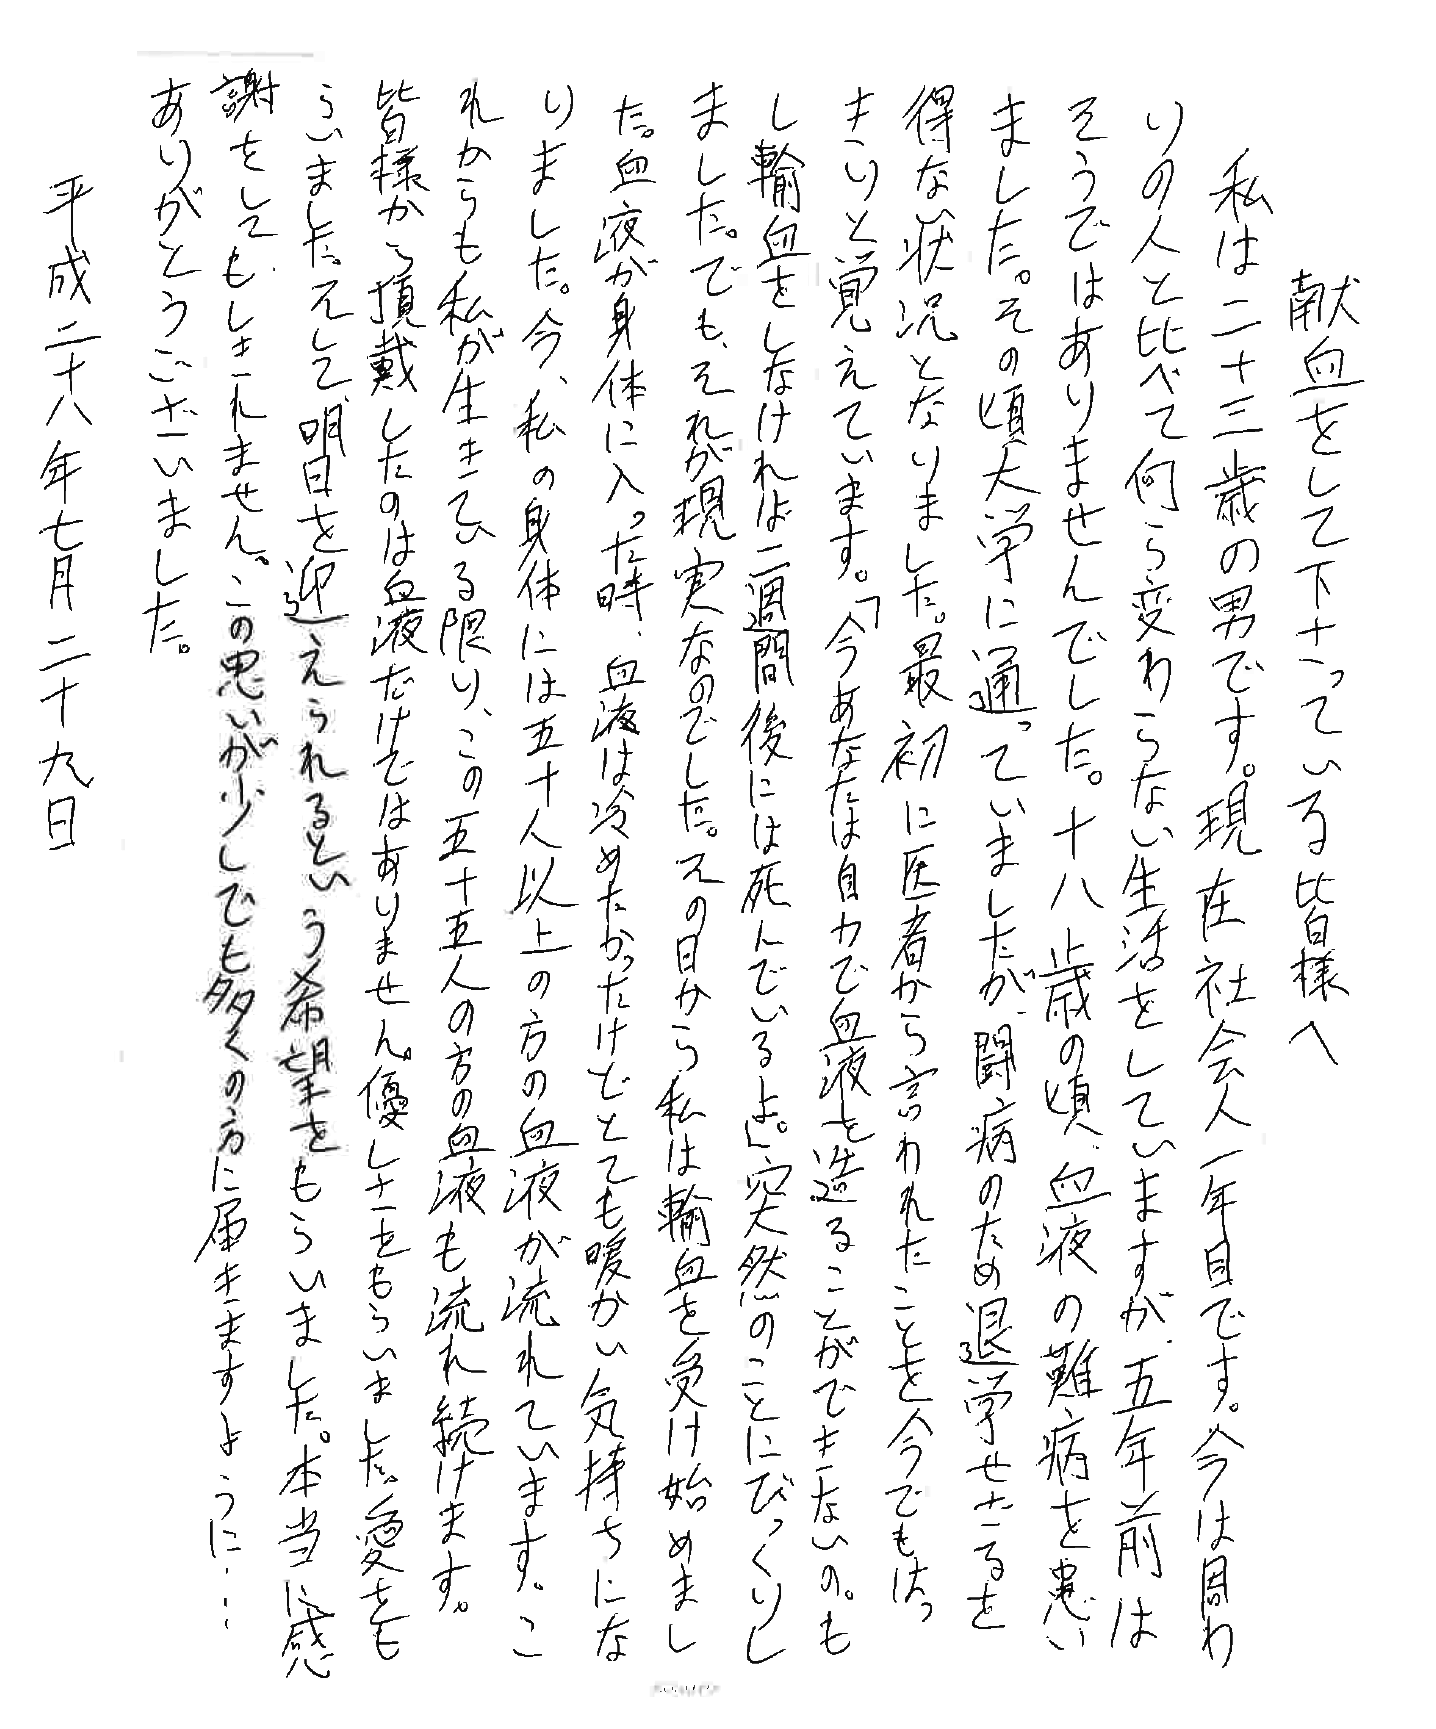 献血をして下さっている皆様へ
私は二十三歳の男です。現在社会人一年目です。今は周わ
りの人と比べて何ら変わらない生活をしていますが、五年前は
そうではありませんでした。十八歳の頃、血液の難病を患い
ました。その頃大学に通っていましたが、闘病のため退学せざるを
得ない状況となりました。最初に医者から言われたことを今でもはっ
きりと覚えています。「今あなたは自力で血液を造ることができないの。も
し輸血をしなければ二週間後には死んでいるよ。」突然のことにびっくりし
ました。でも、それが現実なのでした。その日から私は輸血を受け始めまし
た。血液が身体に入った時、血液は冷めたかったけどとても暖かい気持ちにな
りました。今、私の身体には五十人以上の方の血液が流れています。こ
れからも私が生きている限り、この五十五人の方の血液も流れ続けます。
皆様から頂戴したのは血液だけではありません。優しさをもらいました。愛をも
らいました。そして、明日を迎えられるという希望をもらいました。本当に感
謝をしてもしきれません。この思いが少しでも多くの方に届きますように…
ありがとうございました。
平成二十八年七月二十九日